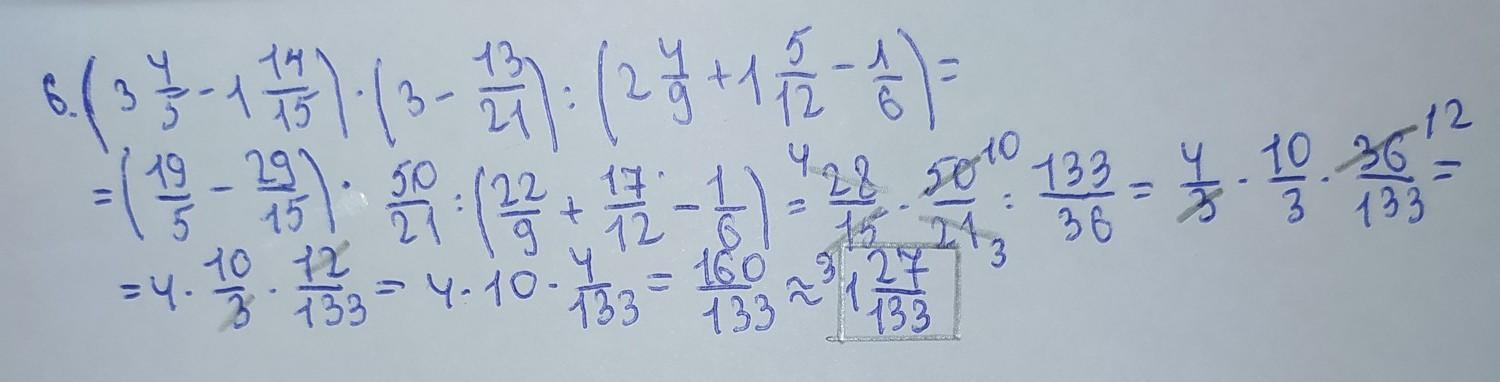 6. (3 4/5 - 1 14/15) · (3 - 13/21) : (2 4/9 + 1 5/12 - 1/6) =
= (19/5 - 29/15) · 50/21 : (22/9 + 17/12 - 1/6) = 4 28/15 3 · 50 10/21 3 : 133/36 = 4/3 · 10/3 · 36 12/133 =
= 4 · 10/3 · 12/133 = 4 · 10 · 4/133 = 160/133 ≈ 1 27/133